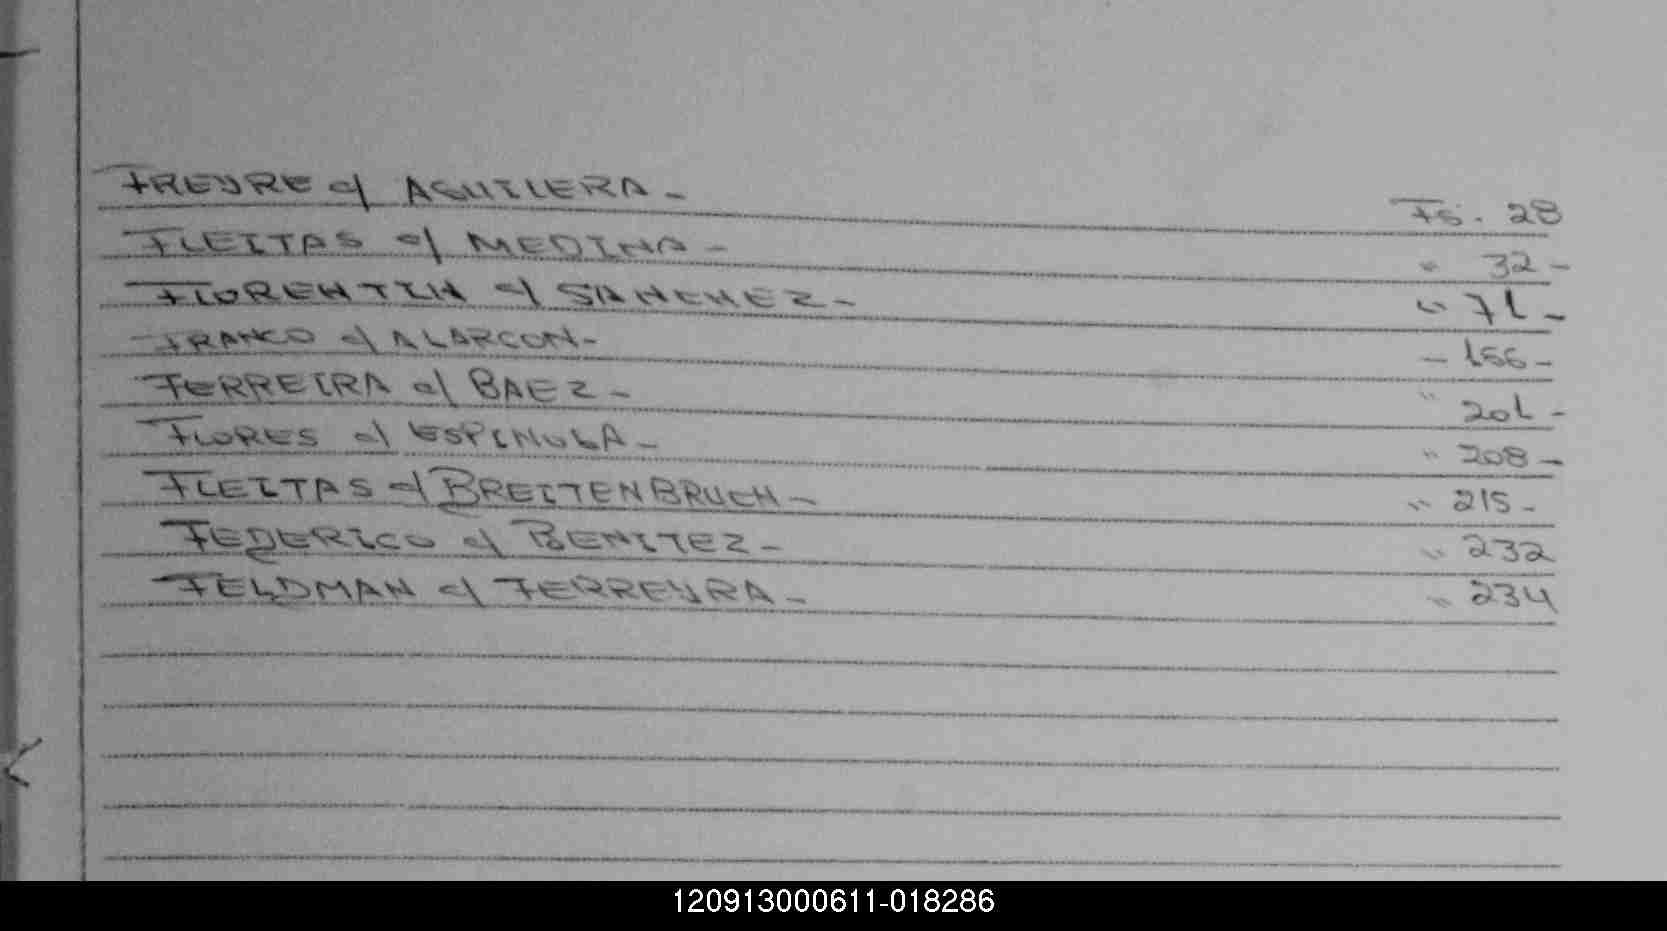 FREYRE c/ AGUILERA - Fs. 28
FLEITAS c/ MEDINA - " 32 -
FLORENTIN c/ SANCHEZ - " 71 -
FRANCO c/ ALARCON - - 156 -
FERREIRA c/ BAEZ - " 201 -
FLORES c/ ESPINOLA - " 208 -
FLEITAS c/ BREITENBRUCH - " 215 -
FEDERICO c/ BENITEZ - " 232
FELDMAN c/ FERREYRA - " 234
120913000611-018286